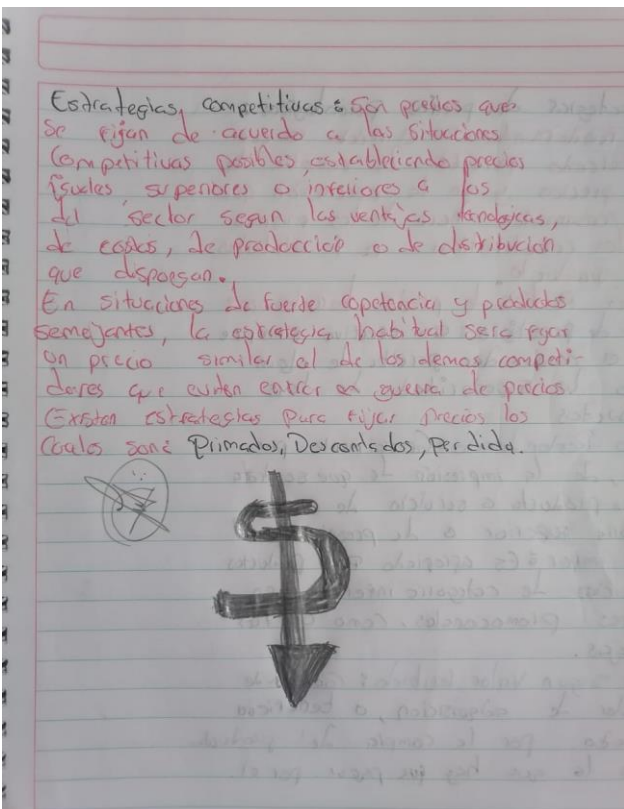 Estrategias competitivas: Son precios que
se fijan de acuerdo a las situaciones
Competitivas posibles, estableciendo precios
iguales superiores o inferiores a los
del sector segun las ventajas tecnologicas,
de costos, de produccion o de distribucion
que dispongan.
En situaciones de fuerte copetencia y productos
semejantes, la estrategia habitual sera fijar
un precio similar al de los demas competi-
dores que eviten entrar en guerra de precios
Existen estrategias para fijar precios los
Cuales son: Primados, Descontados, perdida.